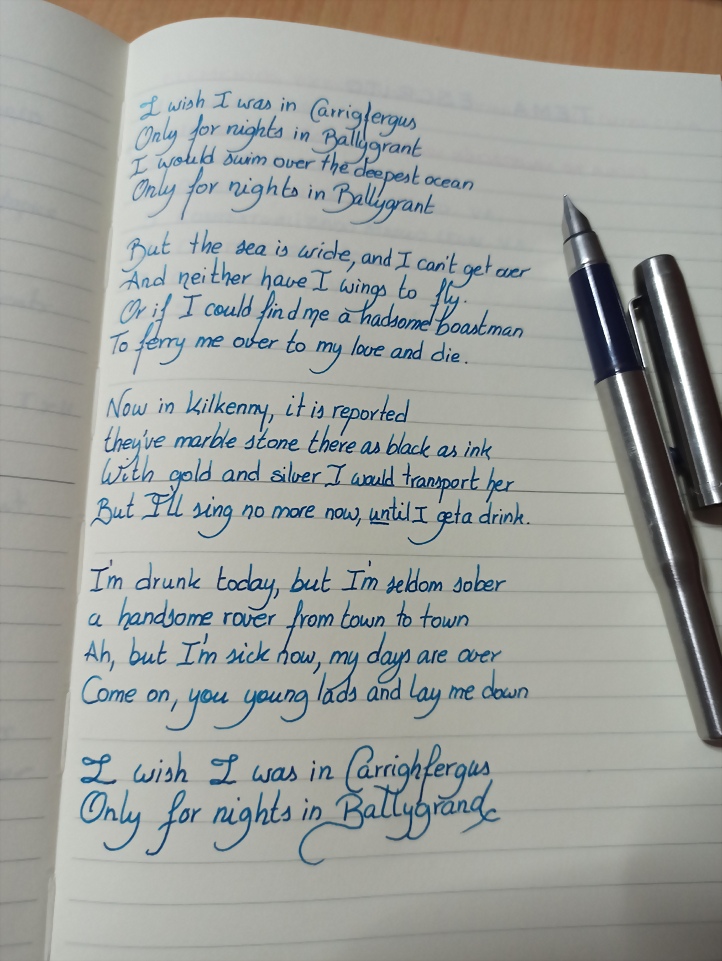 I wish I was in Carrigfergus
Only for nights in Ballygrant
I would swim over the deepest ocean
Only for nights in Ballygrant
But the sea is wide, and I can't get over
And neither have I wings to fly.
Or if I could find me a hadsome boastman
To ferry me over to my love and die.
Now in Kilkenny, it is reported
they've marble stone there as black as ink
With gold and silver I would transport her
But I'll sing no more now, until I get a drink.
I'm drunk today, but I'm seldom sober
a handsome rover from town to town
Ah, but I'm sick now, my days are over
Come on, you young lads and lay me down
I wish I was in Carrighfergus
Only for nights in Ballygrand